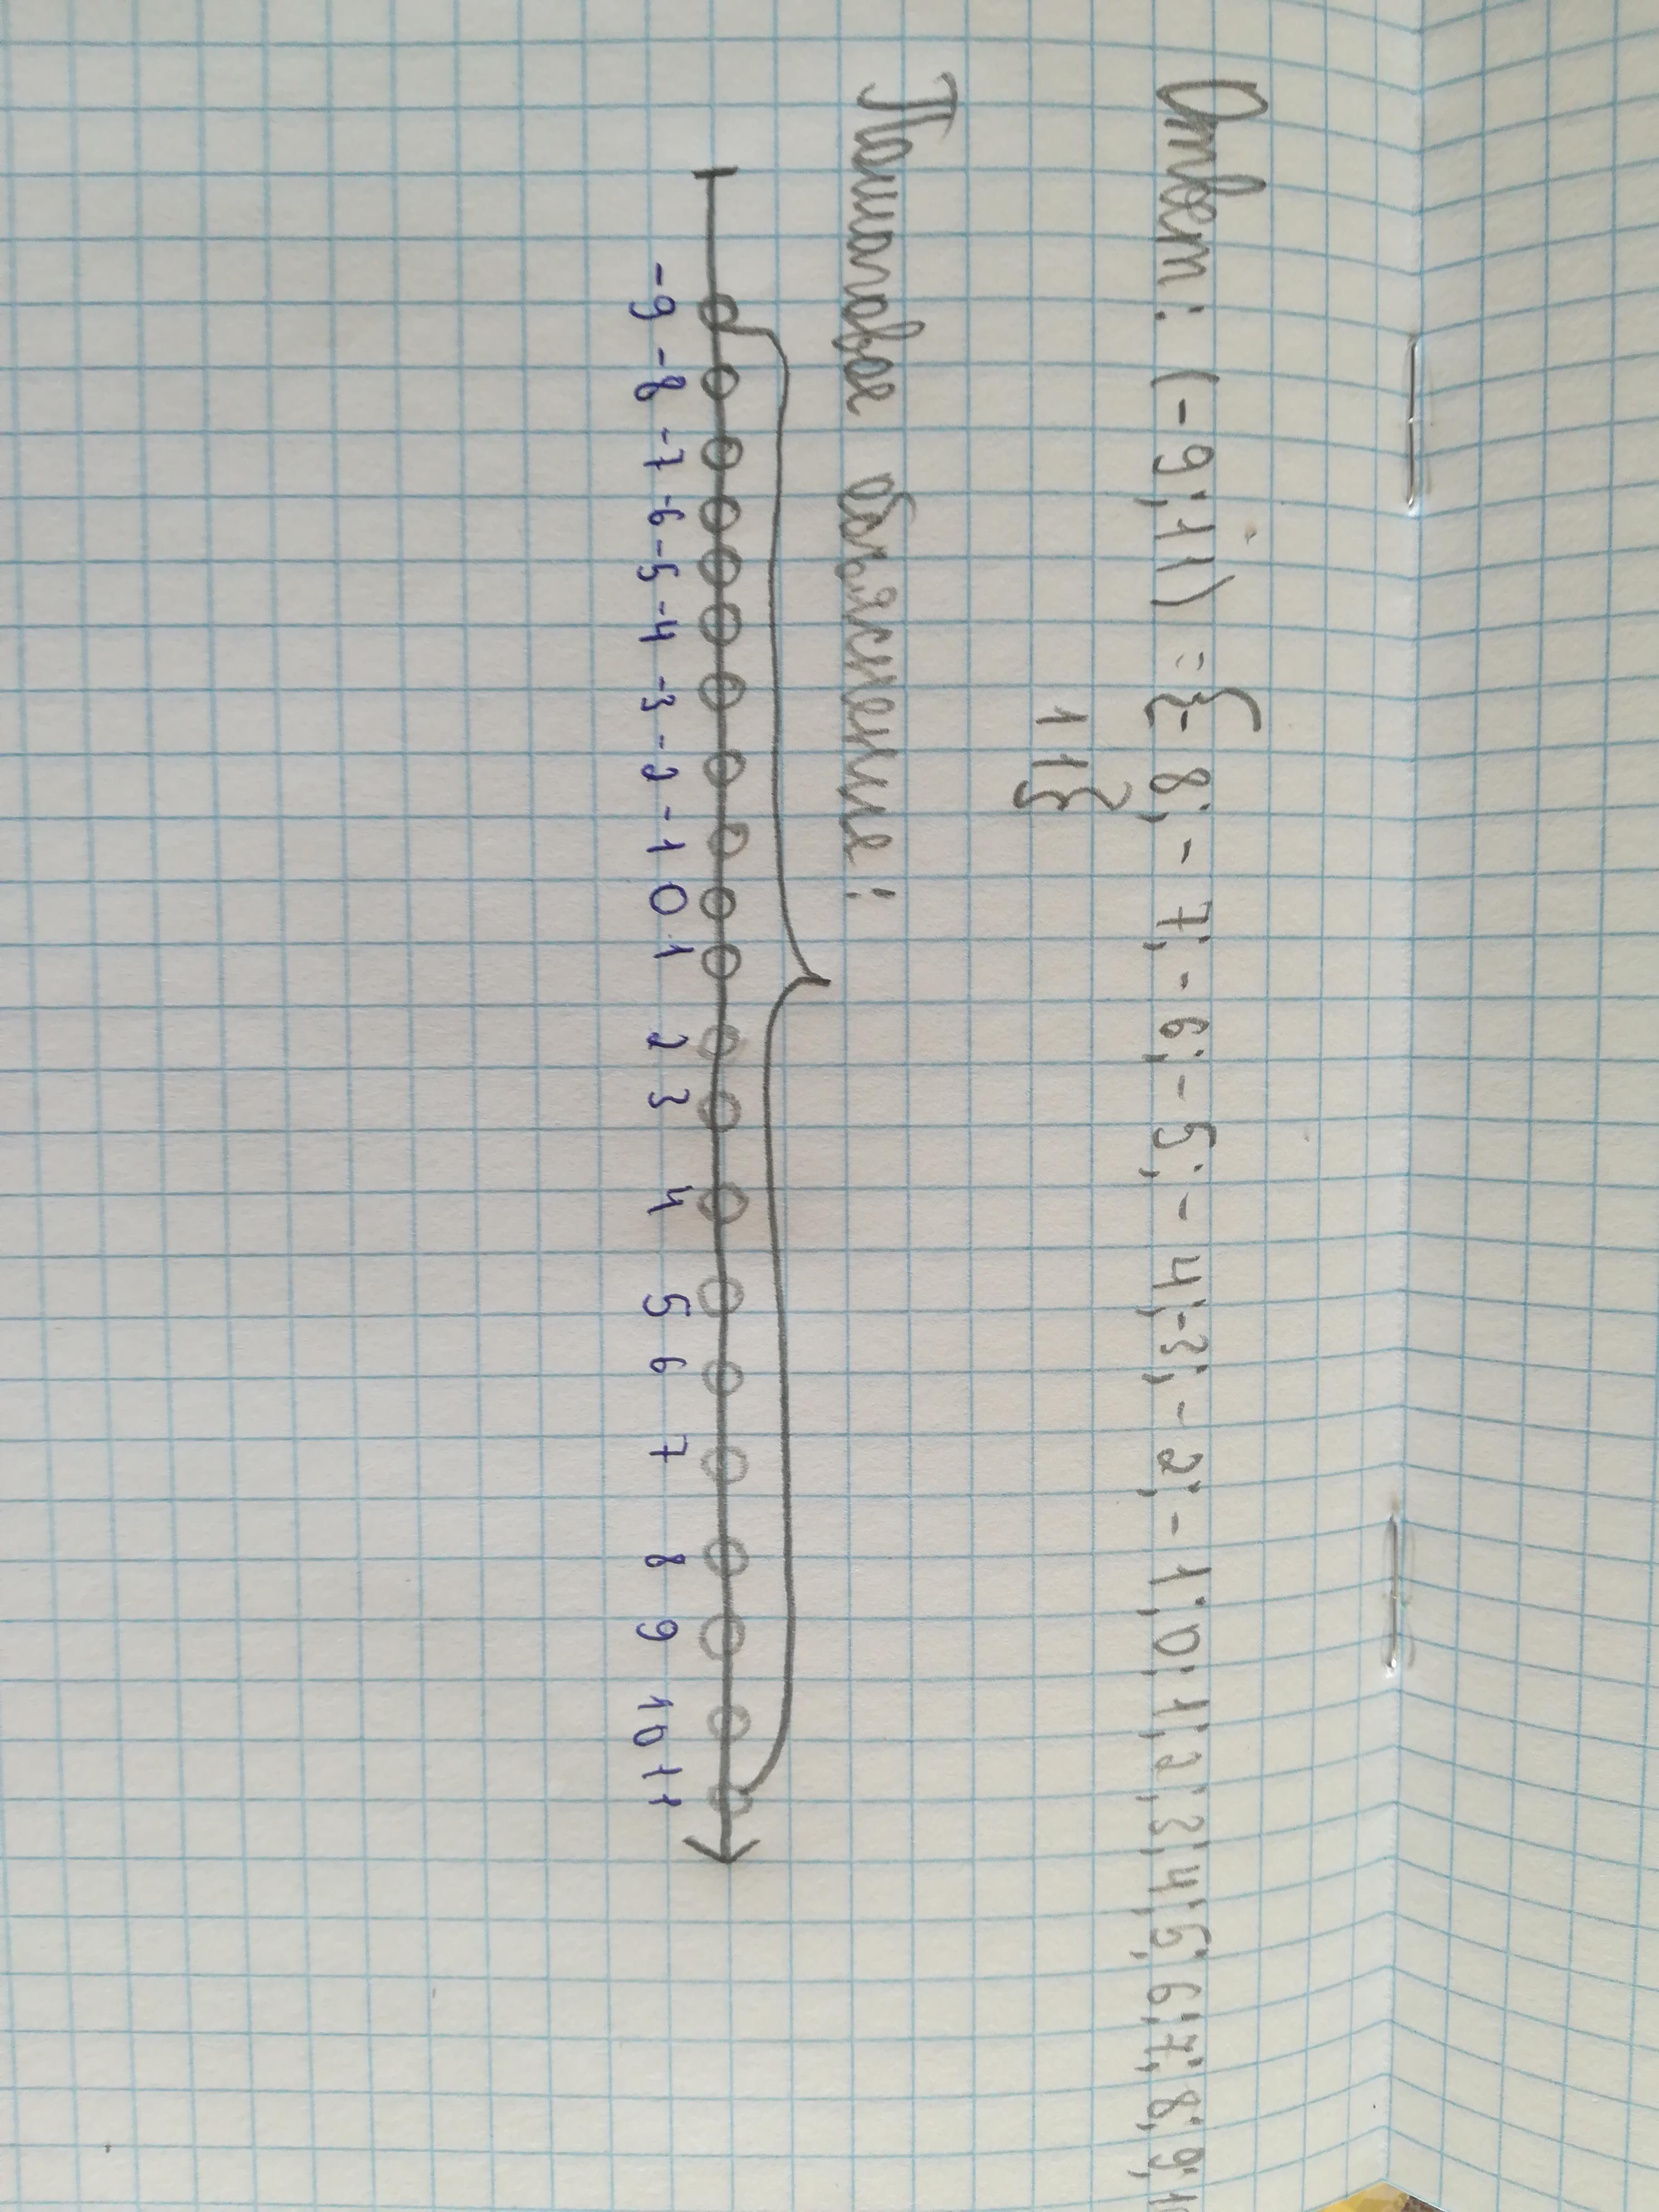 Ответ: (-9; 11) = {-8; -7; -6; -5; -4; -3; -2; -1; 0; 1; 2; 3; 4; 5; 6; 7; 8; 9; 1
11}
Пошаговое объяснение:
-9 -8 -7 -6 -5 -4 -3 -2 -1 0 1 2 3 4 5 6 7 8 9 10 11